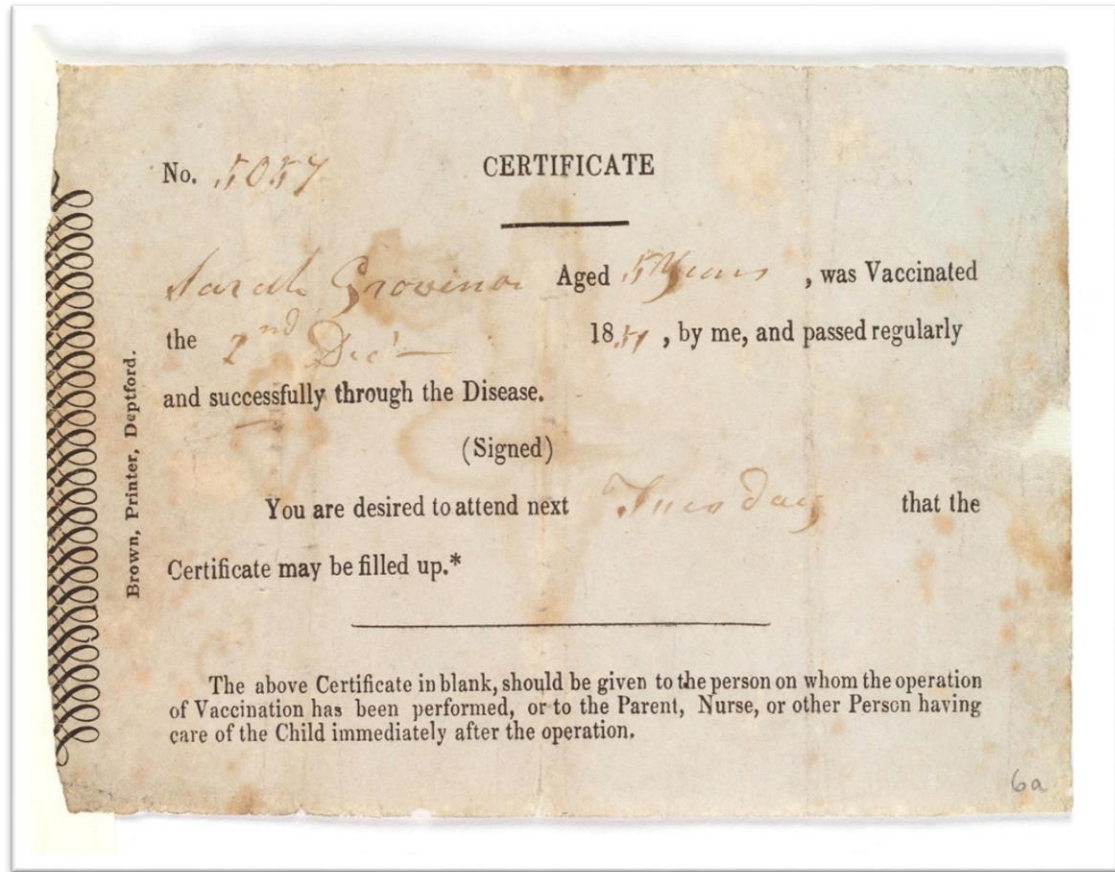 No. 5057 CERTIFICATE
Sarah Grovenor Aged 5 Years , was Vaccinated
the 2nd Decr 1851 , by me, and passed regularly
and successfully through the Disease.
(Signed)
You are desired to attend next Tuesday that the
Certificate may be filled up.*
The above Certificate in blank, should be given to the person on whom the operation
of Vaccination has been performed, or to the Parent, Nurse, or other Person having
care of the Child immediately after the operation.
Brown, Printer, Deptford.
6a